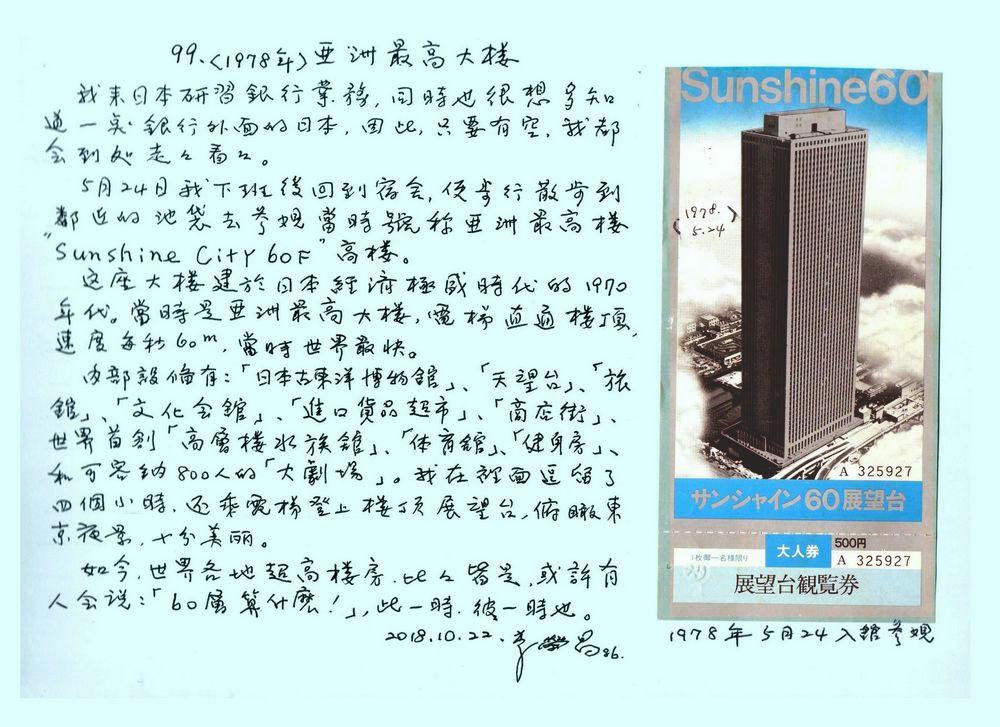 99.<1978年>亞洲最高大楼
我来日本研習銀行業務,同時也很想多知
道一点銀行外面的日本,因此,只要有空,我都
会到処走々看々。
5月24日我下班後回到宿舍,便步行散步到
鄰近的池袋去參观當時號称亞洲最高樓
"Sunshine City 60F"高樓。
这座大楼建於日本経濟極盛時代的1970
年代。當時是亞洲最高大樓,電梯直通樓頂,
速度每秒60m,當時世界最快。
内部設備有:「日本古東洋博物館」、「天望台」、「旅
舘」、「文化会舘」、「進口貨品超市」、「商店街」、
世界首創「高層樓水族舘」、「体育舘」、「健身房」、
和可容納800人的「大劇場」。我在裡面逗留了
四個小時,还乘電梯登上樓顶展望台,俯瞰東
京夜景,十分美丽。
如今,世界各地超高樓房,比々皆是,或許有
人会说:「60層算什麽!」,此一時.彼一時也。
2018.10.22. 86.
Sunshine60
(1978.
5.24)
A 325927
サンシャイン60展望台
1枚御一名様限り
大人券
500円
A 325927
展望台観覧券
1978年5月24入舘參观